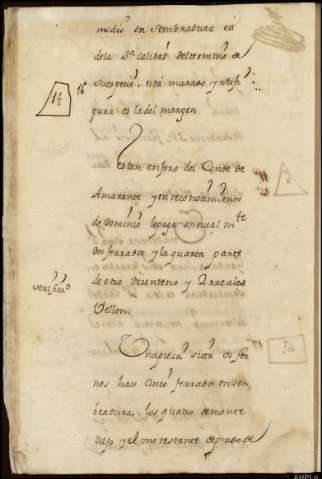 medio en sembradura es
de la 3ª calidad determino de
su especie, está murado y su fi
gura es la del margen
1 1/2
16
estan en foro del Conde de
Amarante y en reconocimiento
de dominio le paga annualmte
dos ferrados y la quarta parte
de otro de senteno y 2 rreales
Vellon
Una pieza sita en for
nos hace cinco ferrados en sem
bradura, los quatro de monte
bajo y el uno restante de prado de